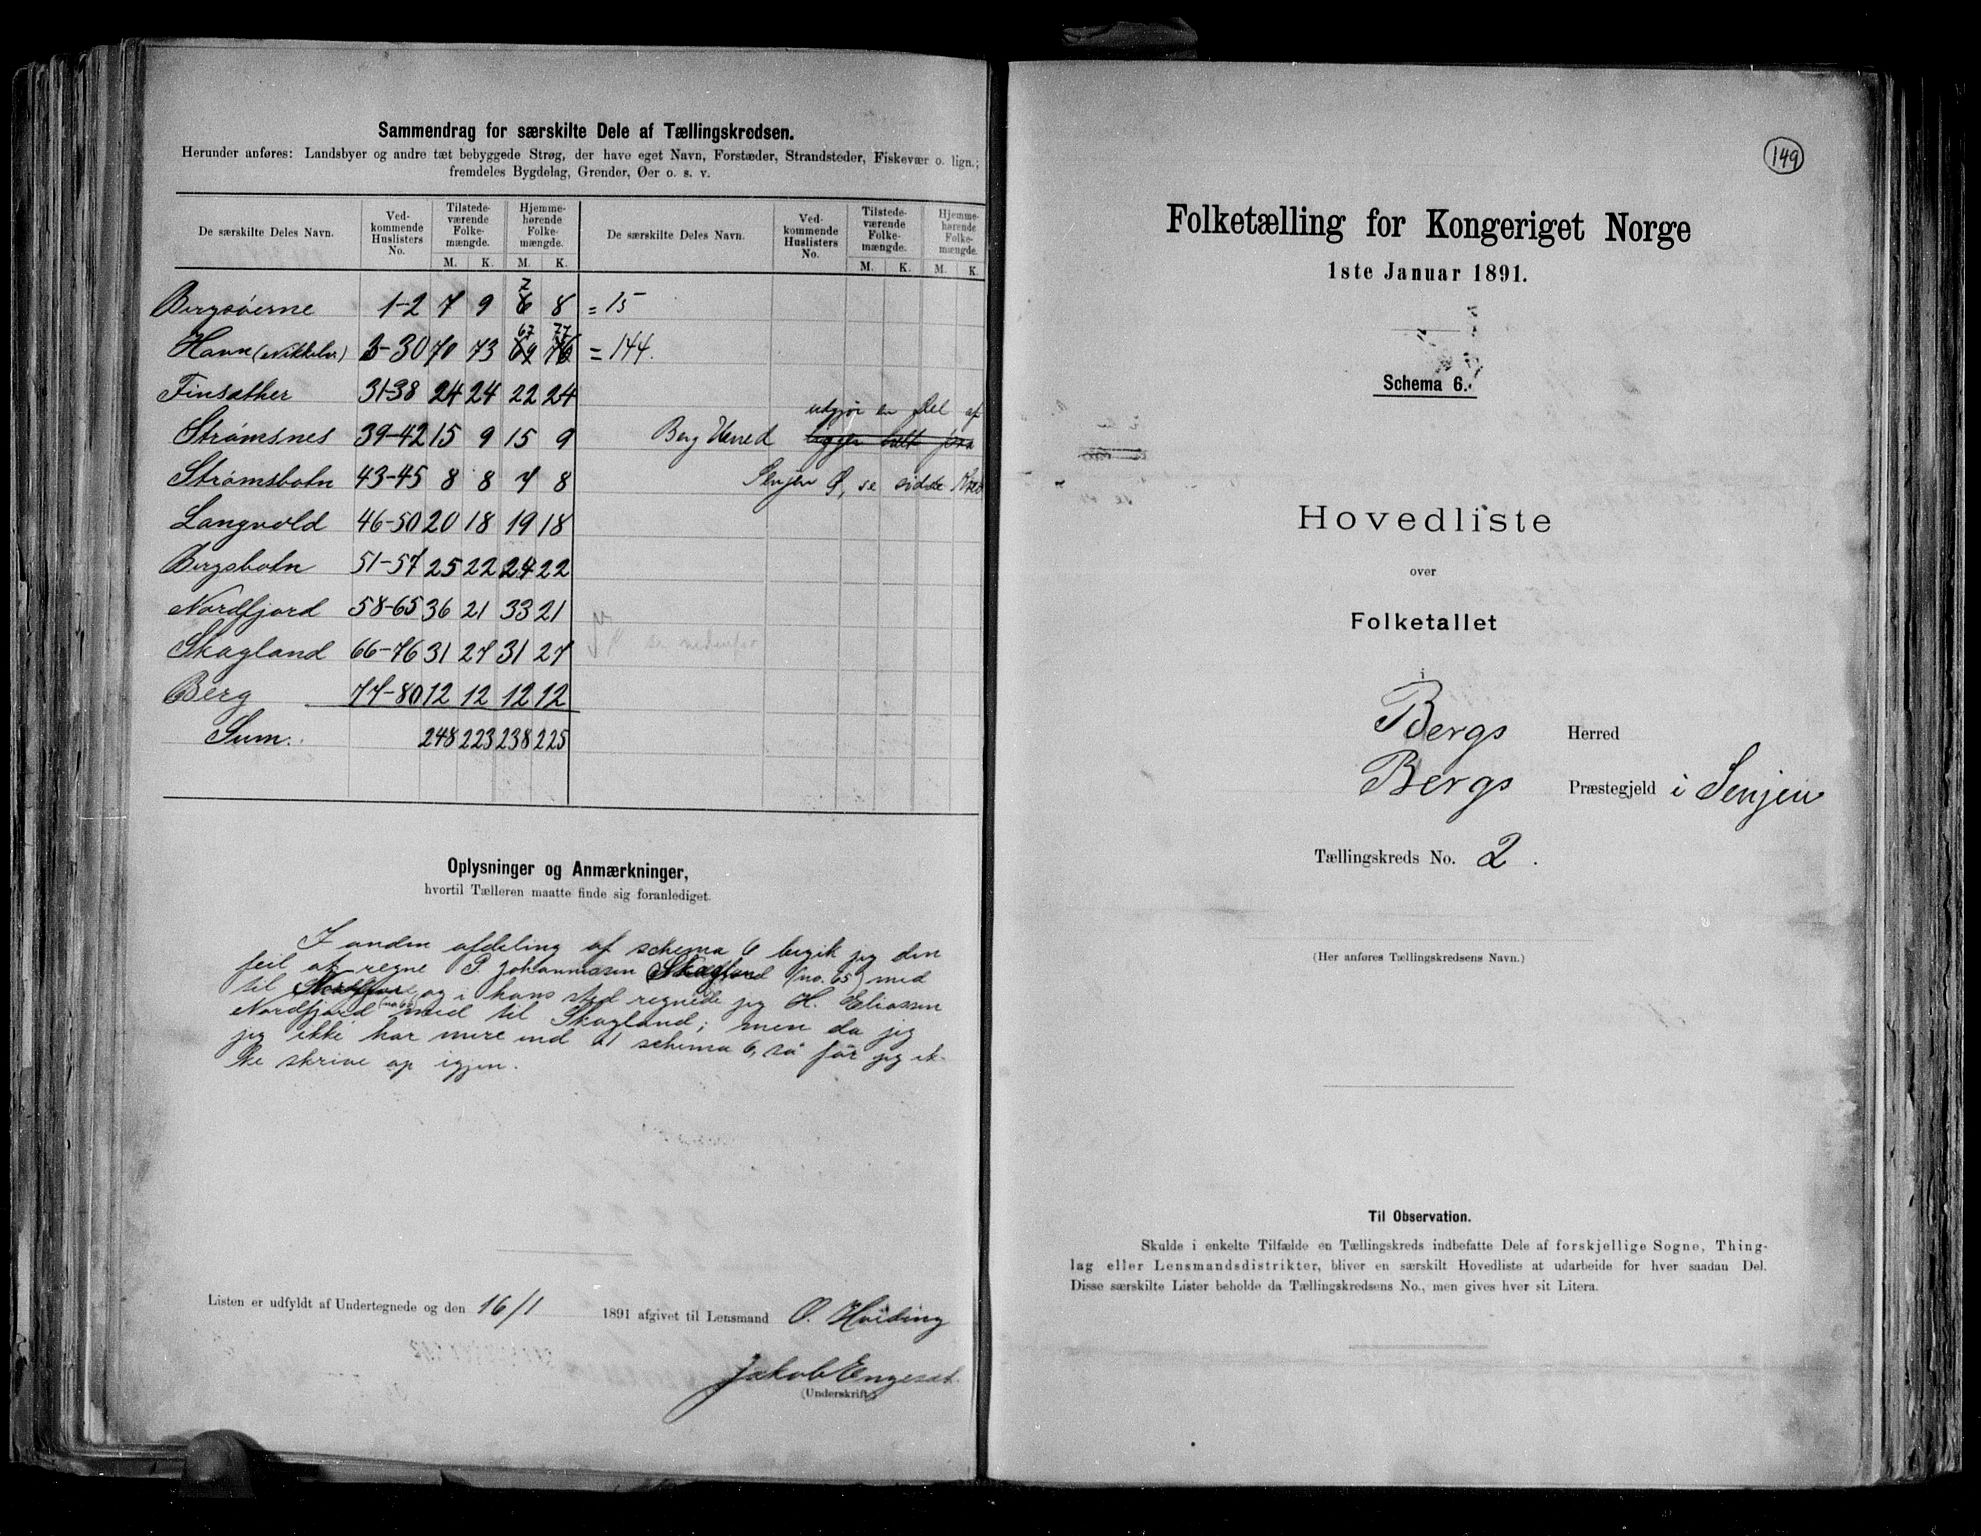 Sammendrag for særskilte Dele af Tællingskredsen.
Herunder anføres: Landsbyer og andre tæt bebyggede Strøg, der have eget Navn, Forstæder, Strandsteder, Fiskevær o. lign.;
fremdeles Bygdelag, Grender, Øer o. s. v.
De særskilte Deles Navn. Ved-kommende Huslisters No. Tilstede-værende Folke-mængde. Hjemme-hørende Folke-mængde. De særskilte Deles Navn. Ved-kommende Huslisters No. Tilstede-værende Folke-mængde. Hjemme-hørende Folke-mængde.
M. K. M. K. M. K. M. K.
7
Bergsøerne 1-2 7 9 6 8 = 15
67 77
Havn (Nikkelv.) 3-30 70 73 69 76 = 144.
Finsæther 31-38 24 24 22 24
udgjør en Del af
Strømsnes 39-42 15 9 15 9 Berg Herred
Strømsbotn 43-45 8 8 7 8 Senjen Ø, se sidste
Langvold 46-50 20 18 19 18
Bergsbotn 51-57 25 22 24 22
Nordfjord 58-65 36 21 33 21
Skagland 66-76 31 27 31 27 se nedenfor
Berg 77-80 12 12 12 12
Sum. 248 223 238 225
Oplysninger og Anmærkninger,
hvortil Tælleren maatte finde sig foranlediget.
I anden afdeling af schema 6 begik jeg den
feil at regne P. Johannessen Skagland (no. 65) med
til og i hans sted regnede jeg H. Eliassen
Nordfjord med til Skagland; men da jeg
jeg ikke har mere end 1 schema 6, så får jeg ik-
ke skrive op igjen.
Listen er udfyldt af Undertegnede og den 16/1 1891 afgivet til Lensmand O. Hveding
Jakob Engeset.
(Underskrift.)
149
Folketælling for Kongeriget Norge
1ste Januar 1891.
Schema 6.
Hovedliste
over
Folketallet
i
Bergs Herred
Bergs Præstegjeld i Senjen
Tællingskreds No. 2.
(Her anføres Tællingskredsens Navn.)
Til Observation.
Skulde i enkelte Tilfælde en Tællingskreds indbefatte Dele af forskjellige Sogne, Thing-
lag eller Lensmandsdistrikter, bliver en særskilt Hovedliste at udarbeide for hver saadan Del.
Disse særskilte Lister beholde da Tællingskredsens No., men gives hver sit Litera.